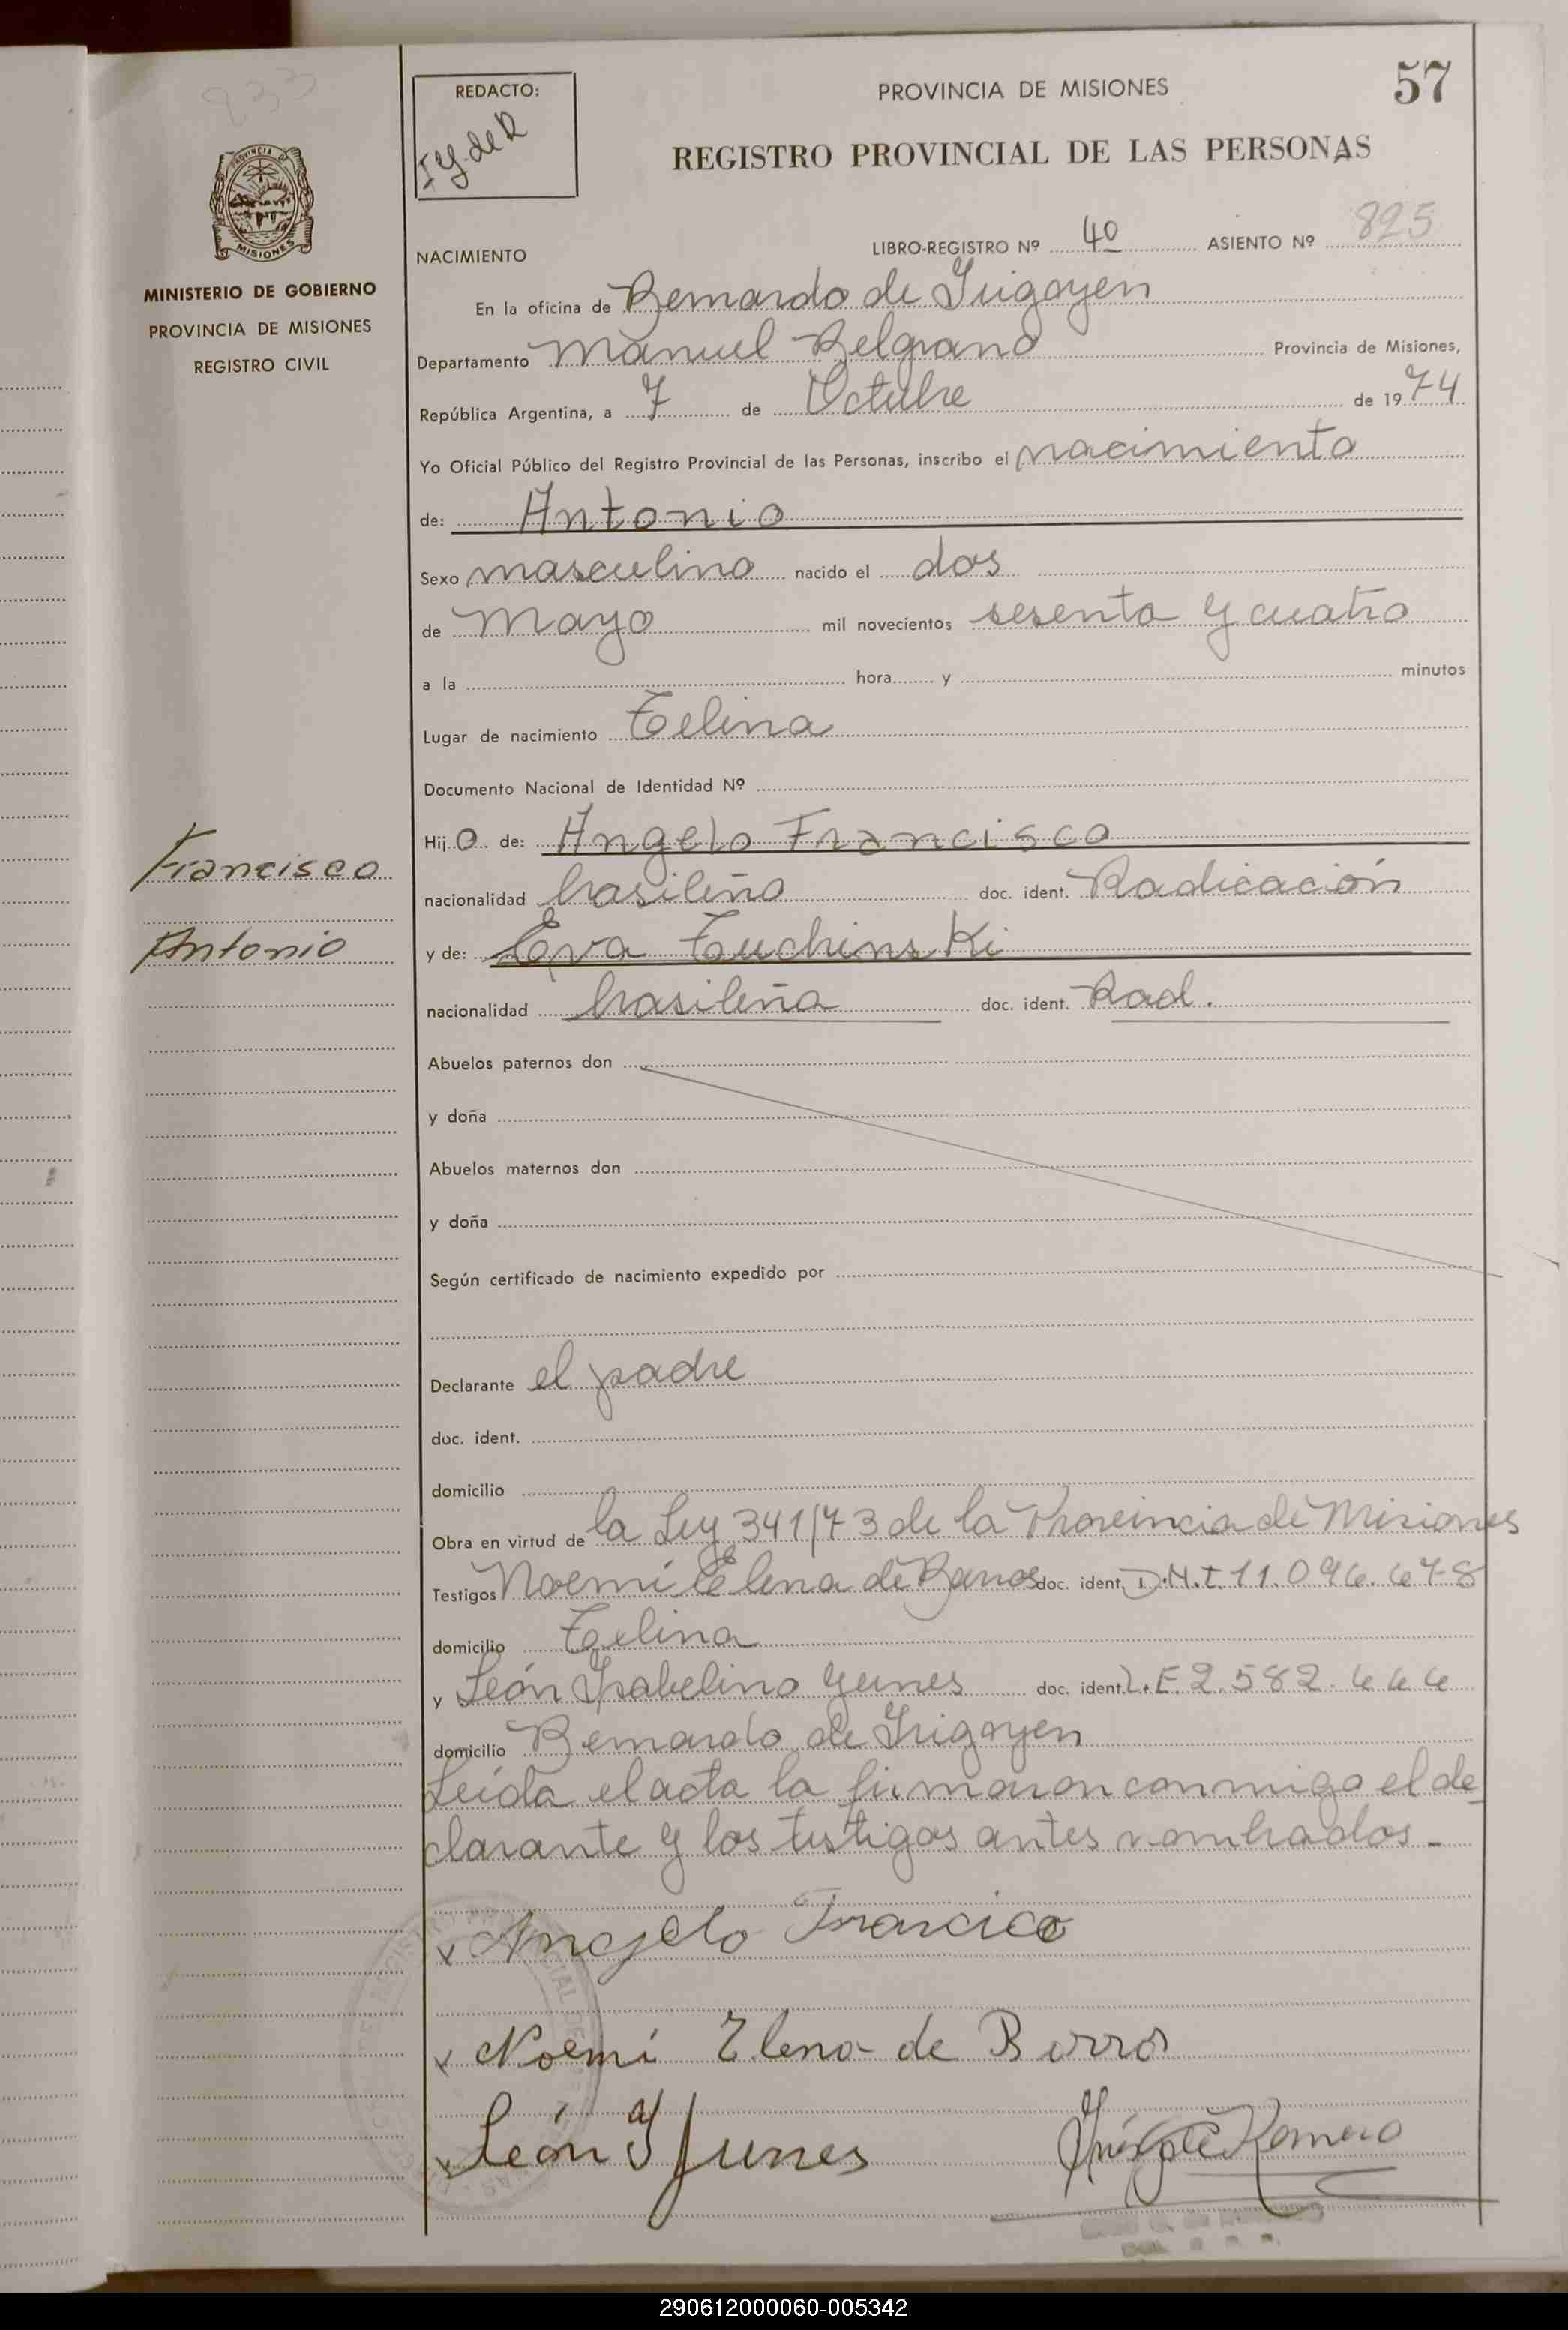 833
57
REDACTO:
I Y. de R
PROVINCIA DE MISIONES
REGISTRO PROVINCIAL DE LAS PERSONAS
PROVINCIA DE
MISIONES
MINISTERIO DE GOBIERNO
PROVINCIA DE MISIONES
REGISTRO CIVIL
Francisco
Antonio
LIBRO-REGISTRO Nº 40 ASIENTO Nº 825
NACIMIENTO
En la oficina de Bernardo de Irigoyen
Departamento Manuel Belgrano Provincia de Misiones,
República Argentina, a 7 de Octubre de 1974
Yo Oficial Público del Registro Provincial de las Personas, inscribo el nacimiento
de: Antonio
Sexo masculino nacido el dos
de Mayo mil novecientos sesenta y cuatro
a la hora y minutos
Lugar de nacimiento Tobuna
Documento Nacional de Identidad Nº
Hijo de: Angelo Francisco
nacionalidad brasileño doc. ident. Radicación
y de: Eva Tuchinski
nacionalidad brasileña doc. ident. Rad.
Abuelos paternos don
y doña
Abuelos maternos don
y doña
Según certificado de nacimiento expedido por
Declarante el padre
doc. ident.
domicilio
Obra en virtud de la Ley 341/73 de la Provincia de Misiones
Testigos Noemí Elena de doc. ident. D.N.I. 11.096.678
domicilio
y León Isabelino Yunes doc. ident. L.E. 2.582.666
domicilio Bernardo de Irigoyen
Leída el acta la firmaron conmigo el de
clarante y los testigos antes nombrados.-
x Angelo Francico
x Noemí Elena de Borro
x León Y Junes
Romero
290612000060-005342